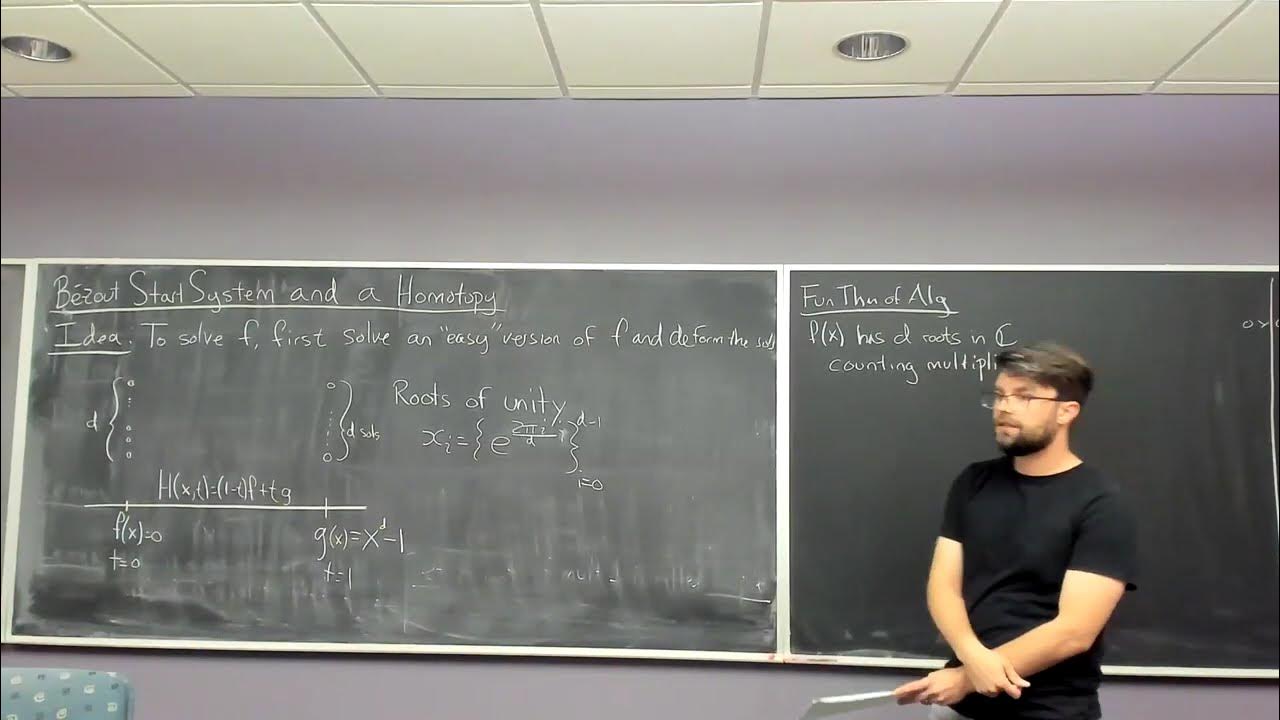 Bézout Start System and a Homotopy
Idea: To solve f, first solve an "easy" version of f and deform the sols
d
d sols
Roots of unity
x_i = { e^{2πi/d} }_{i=0}^{d-1}
H(x,t)=(1-t)f+tg
f(x)=0
t=0
g(x)=x^d-1
t=1
Fun Thm of Alg
f(x) has d roots in ℂ
counting